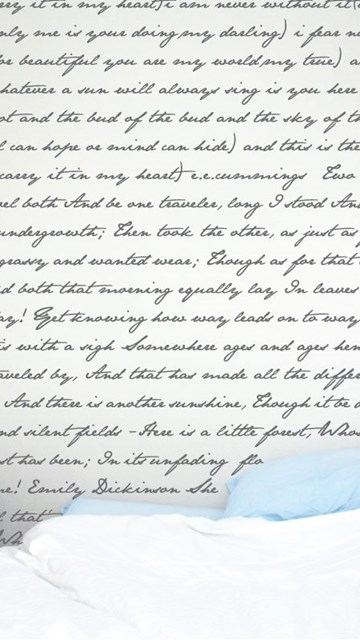 rry it in my heart) i am never without it (
nly me is your doing, my darling) i fear n
or beautiful you are my world, my true) a
hatever a sun will always sing is you here
ot and the bud of the bud and the sky of th
l can hope or mind can hide) and this is the
carry it in my heart) e.e.cummings Two
vel both And be one traveler, long I stood And
undergrowth; Then took the other, as just as
grassy and wanted wear; Though as for that
d both that morning equally lay In leaves
ay! Yet knowing how way leads on to way
is with a sigh Somewhere ages and ages hen
aveled by, And that has made all the differ
And there is another sunshine, Though it be d
nd silent fields - Here is a little forest, Whos
st has been; In its unfading flo
me! Emily Dickinson She
l that
Wh